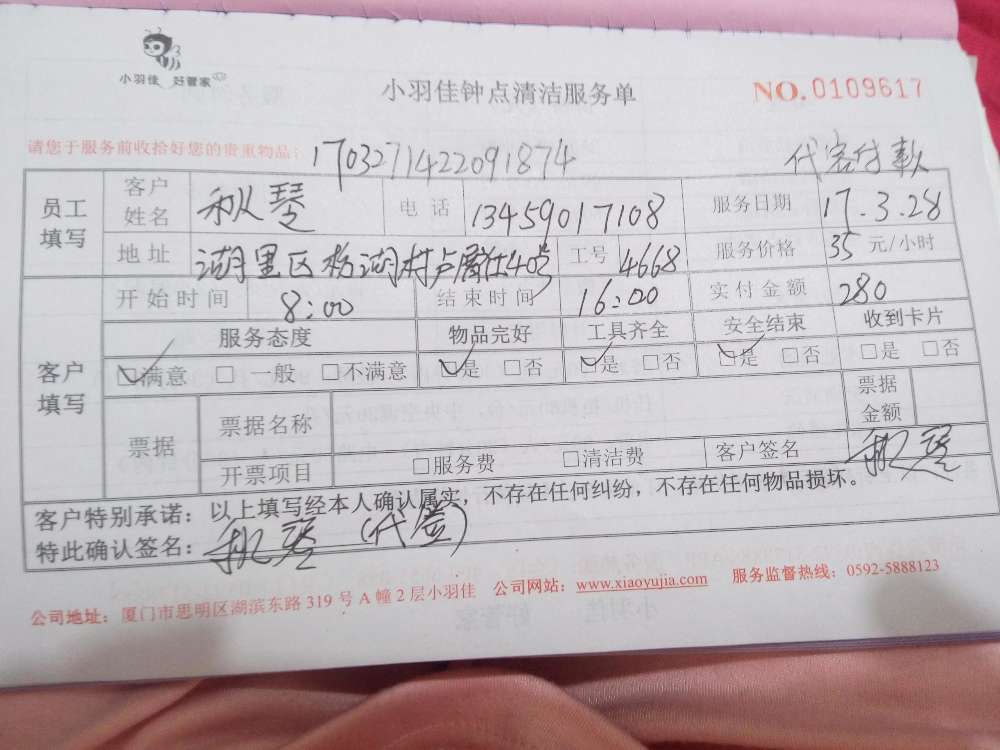 小羽佳 好管家
小羽佳钟点清洁服务单 NO.0109617
请您于服务前收拾好您的贵重物品: 1703271422091874 代客付款
员工填写 客户姓名 秋琴 电话 13459017108 服务日期 17.3.28
地址 湖里区 湖村 40号 工号 4668 服务价格 35 元/小时
客户填写 开始时间 8:00 结束时间 16:00 实付金额 280
服务态度 物品完好 工具齐全 安全结束 收到卡片
☑满意 □一般 □不满意 ☑是 □否 ☑是 □否 ☑是 □否 □是 □否
票据 票据名称 票据金额
开票项目 □服务费 □清洁费 客户签名 秋琴
客户特别承诺: 以上填写经本人确认属实,不存在任何纠纷,不存在任何物品损坏。
特此确认签名: 秋琴 (代签)
公司地址: 厦门市思明区湖滨东路 319 号 A 幢 2 层小羽佳 公司网站: www.xiaoyujia.com 服务监督热线: 0592-5888123